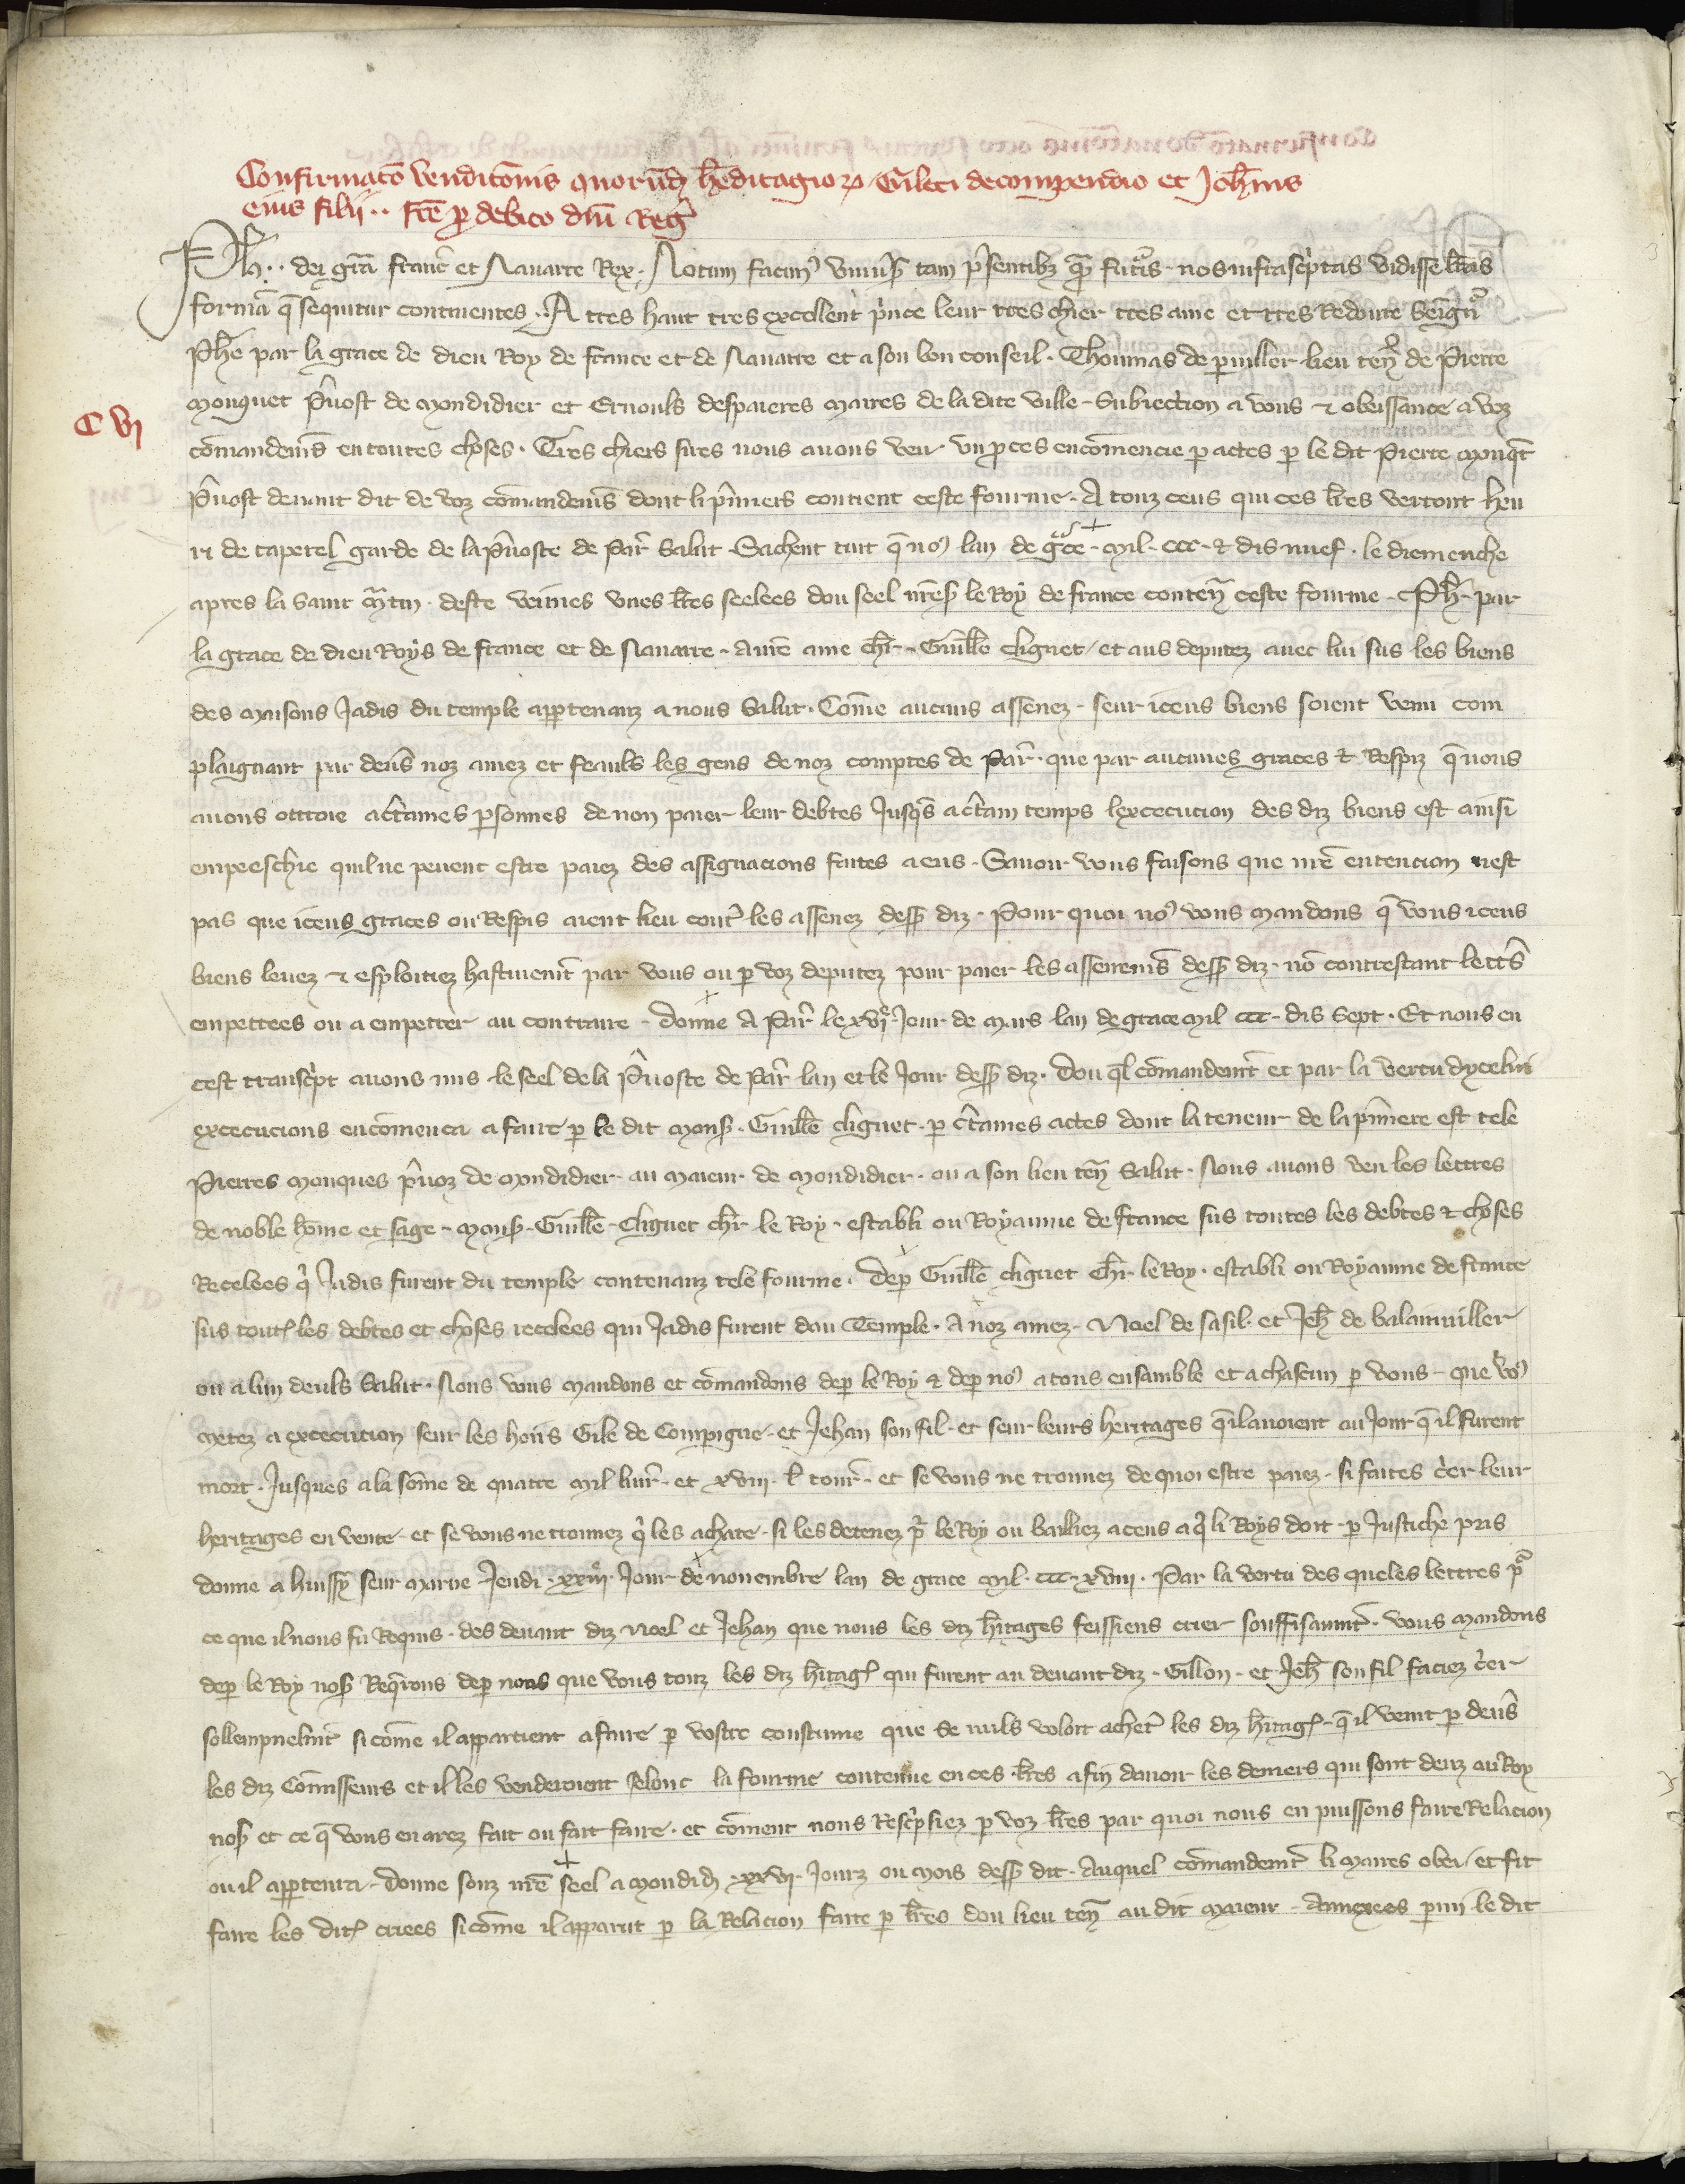 Confirmacõ vendicõnis quorũdꝫ hẽditagioꝝ Gileti de compendio et Joh̃nis
eius filij .. fc̃e ꝑ debito dñi Reg̃
Ph̃ .. dei gr̃a franc̃ et Nauarre Rex. Notum facimꝰ vniuˀs̃ tam p̃sentibꝫ q̃ꝫ futˀis. nos infrasc̃ptas vidisse l̃ras
formã q̃ sequitur continentes. A tres haut tres excellent p̃nce leur tres chier tres ame et tres Redoute Seigñr
Phẽ par la grace de dieu Roy de france et de Nauarre et a son bon conseil. Thoumas de puiller lieu teñ de Pierre
Mouquet P̃uost de Mondidier et Ernouls despaieres maires de la dite ville. Subiection a vous ⁊ obeissance a voz
cõmandem̃s en toutes choses. Tres chiers sires nous auons veu vn ꝓces encõmencie ꝑ actes ꝑ le dit Pierre mouq̃t
P̃uost deuant dit de voz cõmandem̃s dont li p̃miers contient ceste fourme. A touz ceus qui ces l̃res verront hen
ri de taperel garde de la p̃uoste de Par̃ Salut. Sachent tuit q̃ noꝰ lan de gˀce. Mil. ccc. ⁊ dis nuef. le diemenche
apres la saint m̃tin. deste veimes vnes l̃res seelees dou seel nr̃e s̃ le Roy de france conteñ ceste fourme. Ph̃. par
la grace de dieu Roys de france et de Nauarre. a nr̃e ame ch̃r. Guill̃e cliguet / et aus deputez auec lui sus les biens
des maisons Jadis du temple apꝑtenanz a nous Salut. Cõme aucuns assenez. seur iceus biens soient venu com
plaignant par deũs noz amez et feauls les gens de noz comptes de Par̃. que par aucunes graces ⁊ Respiz q̃ nous
auons ottroie a c̃taines ꝑsonnes de non paier leur debtes Jusq̃s a c̃tain temps lexecucion des diz biens est ainsi
empeeschie quil ne peuent estre paiez des assignacions faites a eus. Sauoir vous faisons que nr̃e entencion nest
pas que iceus graces ou Respis aient lieu cont̃ les assenez dess̃ diz. Pour quoi noꝰ vous mandons q̃ vous iceus
biens leuez ⁊ esploitiez hastiuem̃t par vous ou ꝑ voz deputez pour paier les assenem̃s dess̃ diz. nõ contrestant lett̃s
empetrees ou a empetrer au contraire. donne A Par̃ le xvjᵉ Jour de Mars lan de grace mil ccc. dis Sept. Et nous en
cest transc̃pt auons mis le seel de la P̃uoste de Par̃ lan et le Jour dess̃ diz. Dou q̃l cõmandem̃t et par la vertu dycelui
execucions encõmenca a faire ꝑ le dit Mons̃. Guill̃e cliguet. ꝑ c̃taines actes dont la teneur de la p̃miere est tele
Pierres Mouques p̃uoz de Mondidier. au maieur de Mondidier. ou a son lieu teñ Salut. Nous auons veu les lettres
de noble hõme et sage. mons̃. Guill̃e. Cliguet ch̃r le Roy. establi ou Royaume de france sus toutes les debtes ⁊ choses
Recelees q̃ Jadis furent du temple contenanz tele fourme. Deꝑ Guill̃e cliguet Ch̃r. le Roy. establi ou Royaume de france
sus tout̃ les debtes et choses recelees qui Jadis furent dou Temple. A noz amez. Noel de sasil. et Jeh̃ de balainuiller
ou a lun deuls Salut. Nous vous mandons et cõmandons deꝑ le Roy ⁊ deꝑ noꝰ a tous ensamble et a chascun ꝑ vous. que voꝰ
metez a execution seur les hoirs Gile de Compigne. et Jehan son fil. et seur leurs heritages q̃ il auoient au Jour q̃ il furent
mort. Jusques a la sõme de quatre Mil liur̃. et xviii. l̃ tour̃. et se vous ne trouuez de quoi estre paiez. si faites c̃er leur
heritages en vente. et se vous ne trouuez q̃ les achate. si les detenez p̃ le Roy ou bailliez a ceus a q̃ li Roys doit. ꝑ Justiche pris
donne a huissy seur marne Jeudi. xxiijᵉ. Jour de nouembre lan de grace Mil. ccc. xviii. Par la vertu des queles lettres pˀ
ce que il nous fu Requis. des deuant diz Noel et Jehan que nous les diz h̃itages feissiens crier souffisanm̃t. vous mandons
deꝑ le Roy nos̃ Req̃rons deꝑ nous que vous touz les diz h̃itag̃ qui furent au deuant diz. Gillon. et Jeh̃ son fil faciez c̃er
sollempnelm̃t si cõme il appartient a faire ꝑ vostre coustume que se nuls voloit achet̃ les diz h̃itag̃. q̃ il venit ꝑ deũs
les diz Cõmisseurs et il les venderoient selonc la fourme contenue en ces l̃res a fin dauoir les deniers qui sont deuz au Roy
nos̃ et ce q̃ vous en arez fait ou fait faire. et cõment nous Resc̃psiez ꝑ voz l̃res par quoi nous en puissons faire Relacion
ou il apꝑtenra. donne souz nr̃e seel a Mondid̃. xxvj. Jourz ou mois dess̃ dit. Auquel cõmandem̃t li maires obei / et fit
faire les dit̃ criees si cõme il apparut ꝑ la Relacion faite ꝑ l̃res dou lieu teñ au dit maieur. Annexees ꝑmi le dit
C vj